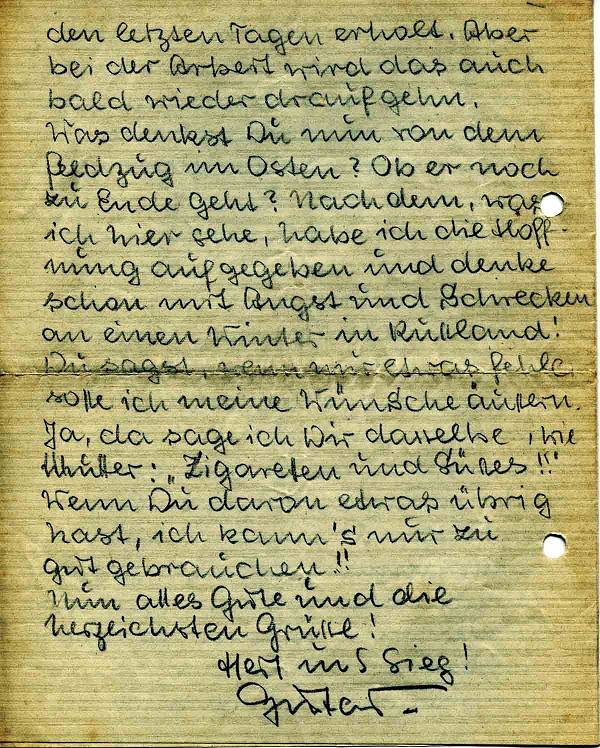 den letzten Tagen erholt. Aber
bei der Arbeit wird das auch
bald wieder draufgehn.
Was denkst Du nun von dem
Feldzug im Osten? Ob er noch
zu Ende geht? Nach dem, was
ich hier sehe, habe ich die Hoff-
nung aufgegeben und denke
schon mit Angst und Schrecken
an einen Winter in Rußland!
Du sagst, wenn mir etwas fehle,
solle ich meine Wünsche äußern.
Ja, da sage ich Dir dasselbe, wie
Mutter: „Zigareten und Süßes!!"
Wenn Du davon etwas übrig
hast, ich kann's nur zu
gut gebrauchen!!
Nun alles Gute und die
herzlichsten Grüße!
Heil und Sieg!
Gustav